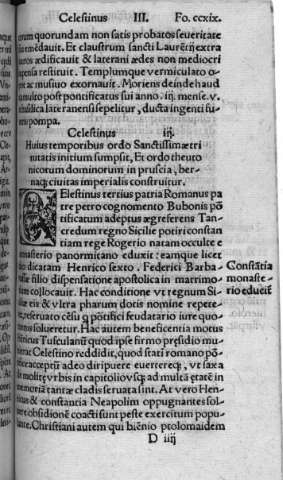 Celestinus III. Fo. ccxix.
rum quorundam non satis probatos seueritate
sua emēdauit. Et claustrum sancti Laurētij extra
muros ædificauit & laterani ædes non mediocri
impensa restituit. Templumque vermiculato o-
pere ac musiuo exornauit. Moriens deinde haud
multo post pontificatus sui anno .iij. mense .v.
basilica lateranensi sepelitur, ducta ingenti fu-
neris pompa.
Celestinus iij.
Huius temporibus ordo Sanctissimæ tri
nitatis initium sumpsit, Et ordo theuto
nicorum dominorum in pruscia, ber-
naq; ciuitas imperialis construitur.
CElestinus tertius patria Romanus pa
tre petro cognomento Bubonis pō
tificatum adeptus ægre ferens Tan-
credum regno Sicilie potiri constan
tiam rege Rogerio natam occulte e
monasterio panormitano eduxit: eamque licet
deo dicatam Henrico sexto, Federici Barba-
rosse filio dispensatione apostolica in matrimo-
nium collocauit. Hac conditione vt regnum Si-
cilie citra & vltra pharum dotis nomine repete-
ret, reseruato cēsu q̄ pōtifici feudatario iure quo-
tannis solueretur. Hac autem beneficentia motus
Henricus Tusculanū quod ipse firmo presidio mu-
nierat Celestino reddidit, quod stati romano pō-
tifice accepto adeo diripuere euerterēq;, vt saxa
demolite vrbis in capitoliō vsq; ad multā ętatē in
memoriā tantæ cladis seruata sint. At vero Hen-
ricus & constantia Neapolim oppugnantes sol-
uere obsidionē coacti sunt peste exercitum popu-
lante. Christiani autem qui biēnio ptolomaidem
D iiij
Constātia
monaste-
rio educit